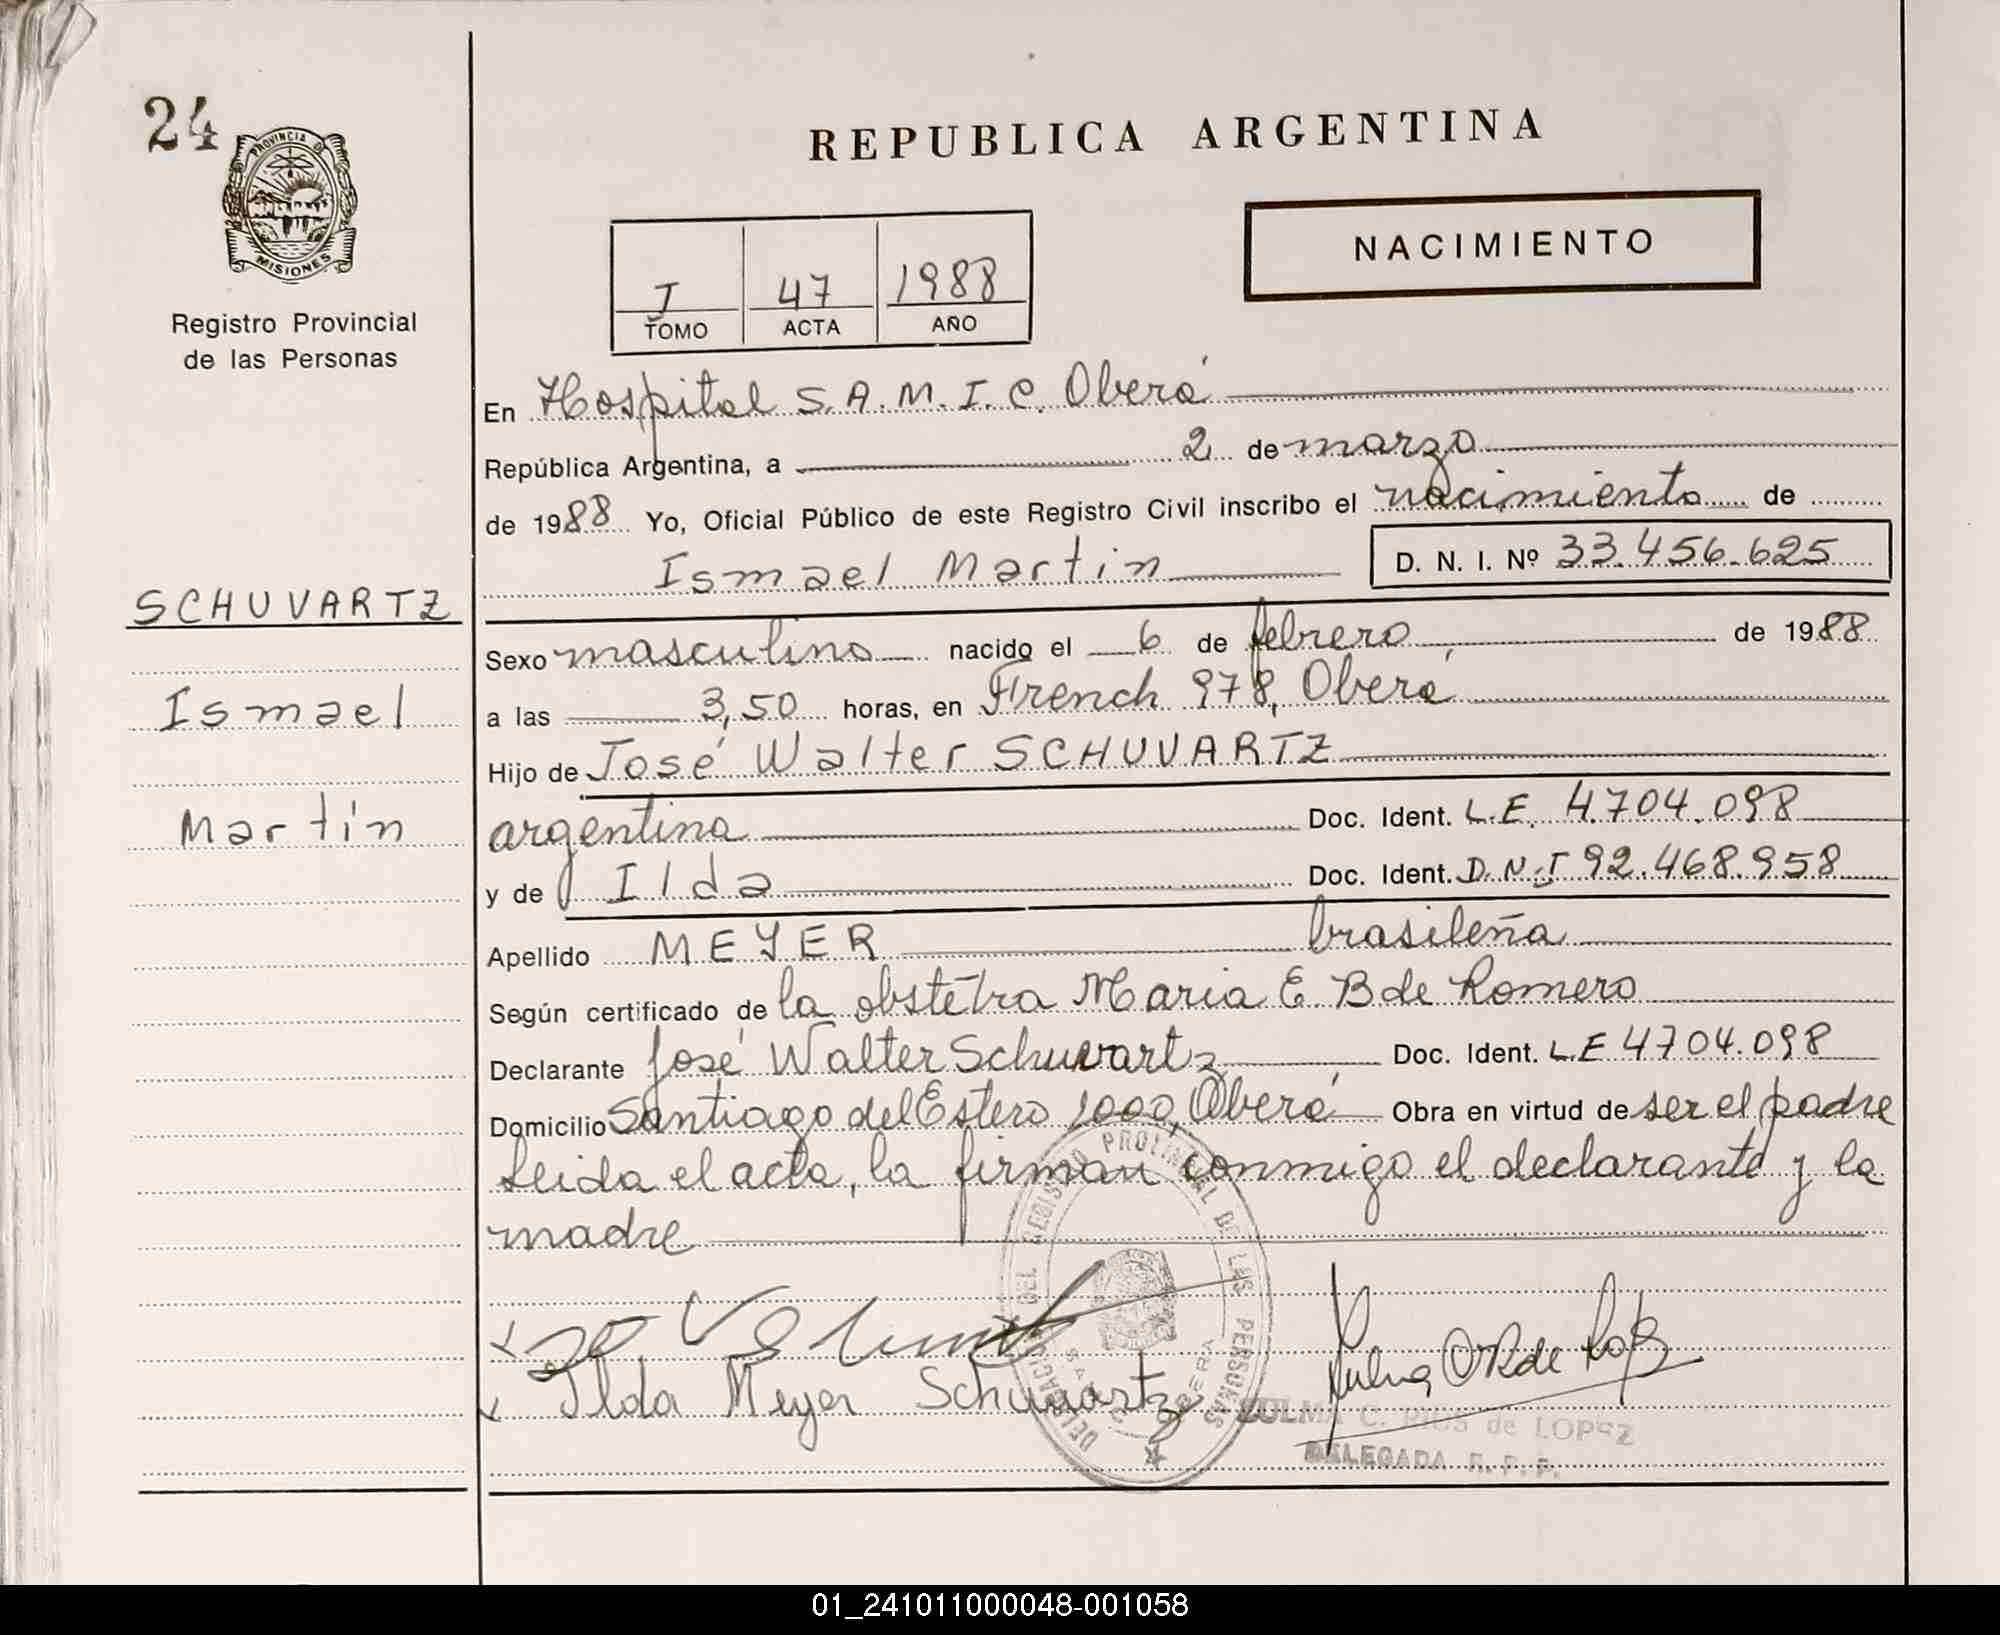 24
PROVINCIA D
MISIONES
Registro Provincial
de las Personas
REPUBLICA ARGENTINA
NACIMIENTO
I 47 1988
TOMO ACTA AÑO
En Hospital S.A.M.I.C. Oberá
República Argentina, a 2 de marzo
de 1988 Yo, Oficial Público de este Registro Civil inscribo el nacimiento de
Ismael Martin D. N. I. Nº 33.456.625
SCHUVARTZ
Ismael
Martín
Sexo masculino nacido el 6 de febrero de 1988
a las 3,50 horas, en French 978, Oberá
Hijo de José Walter SCHUVARTZ
argentina Doc. Ident. L.E. 4.704.098
y de Ilda Doc. Ident. D.N.I 92.468.958
Apellido MEYER brasileña
Según certificado de la obstétra Maria E B de Romero
Declarante José Walter Schuvartz Doc. Ident. L.E 4704.098
Domicilio Santiago del Estero 1000, Oberá Obra en virtud de ser el padre
Leida el acta, la firman conmigo el declarante y la
madre
Ilda Meyer Schuvartz
DELEGACION DEL REGISTRO PROVINCIAL DE LAS PERSONAS
OBERA
ZULMA C. RIOS de LOPEZ
DELEGADA R. P. P.
01_241011000048-001058